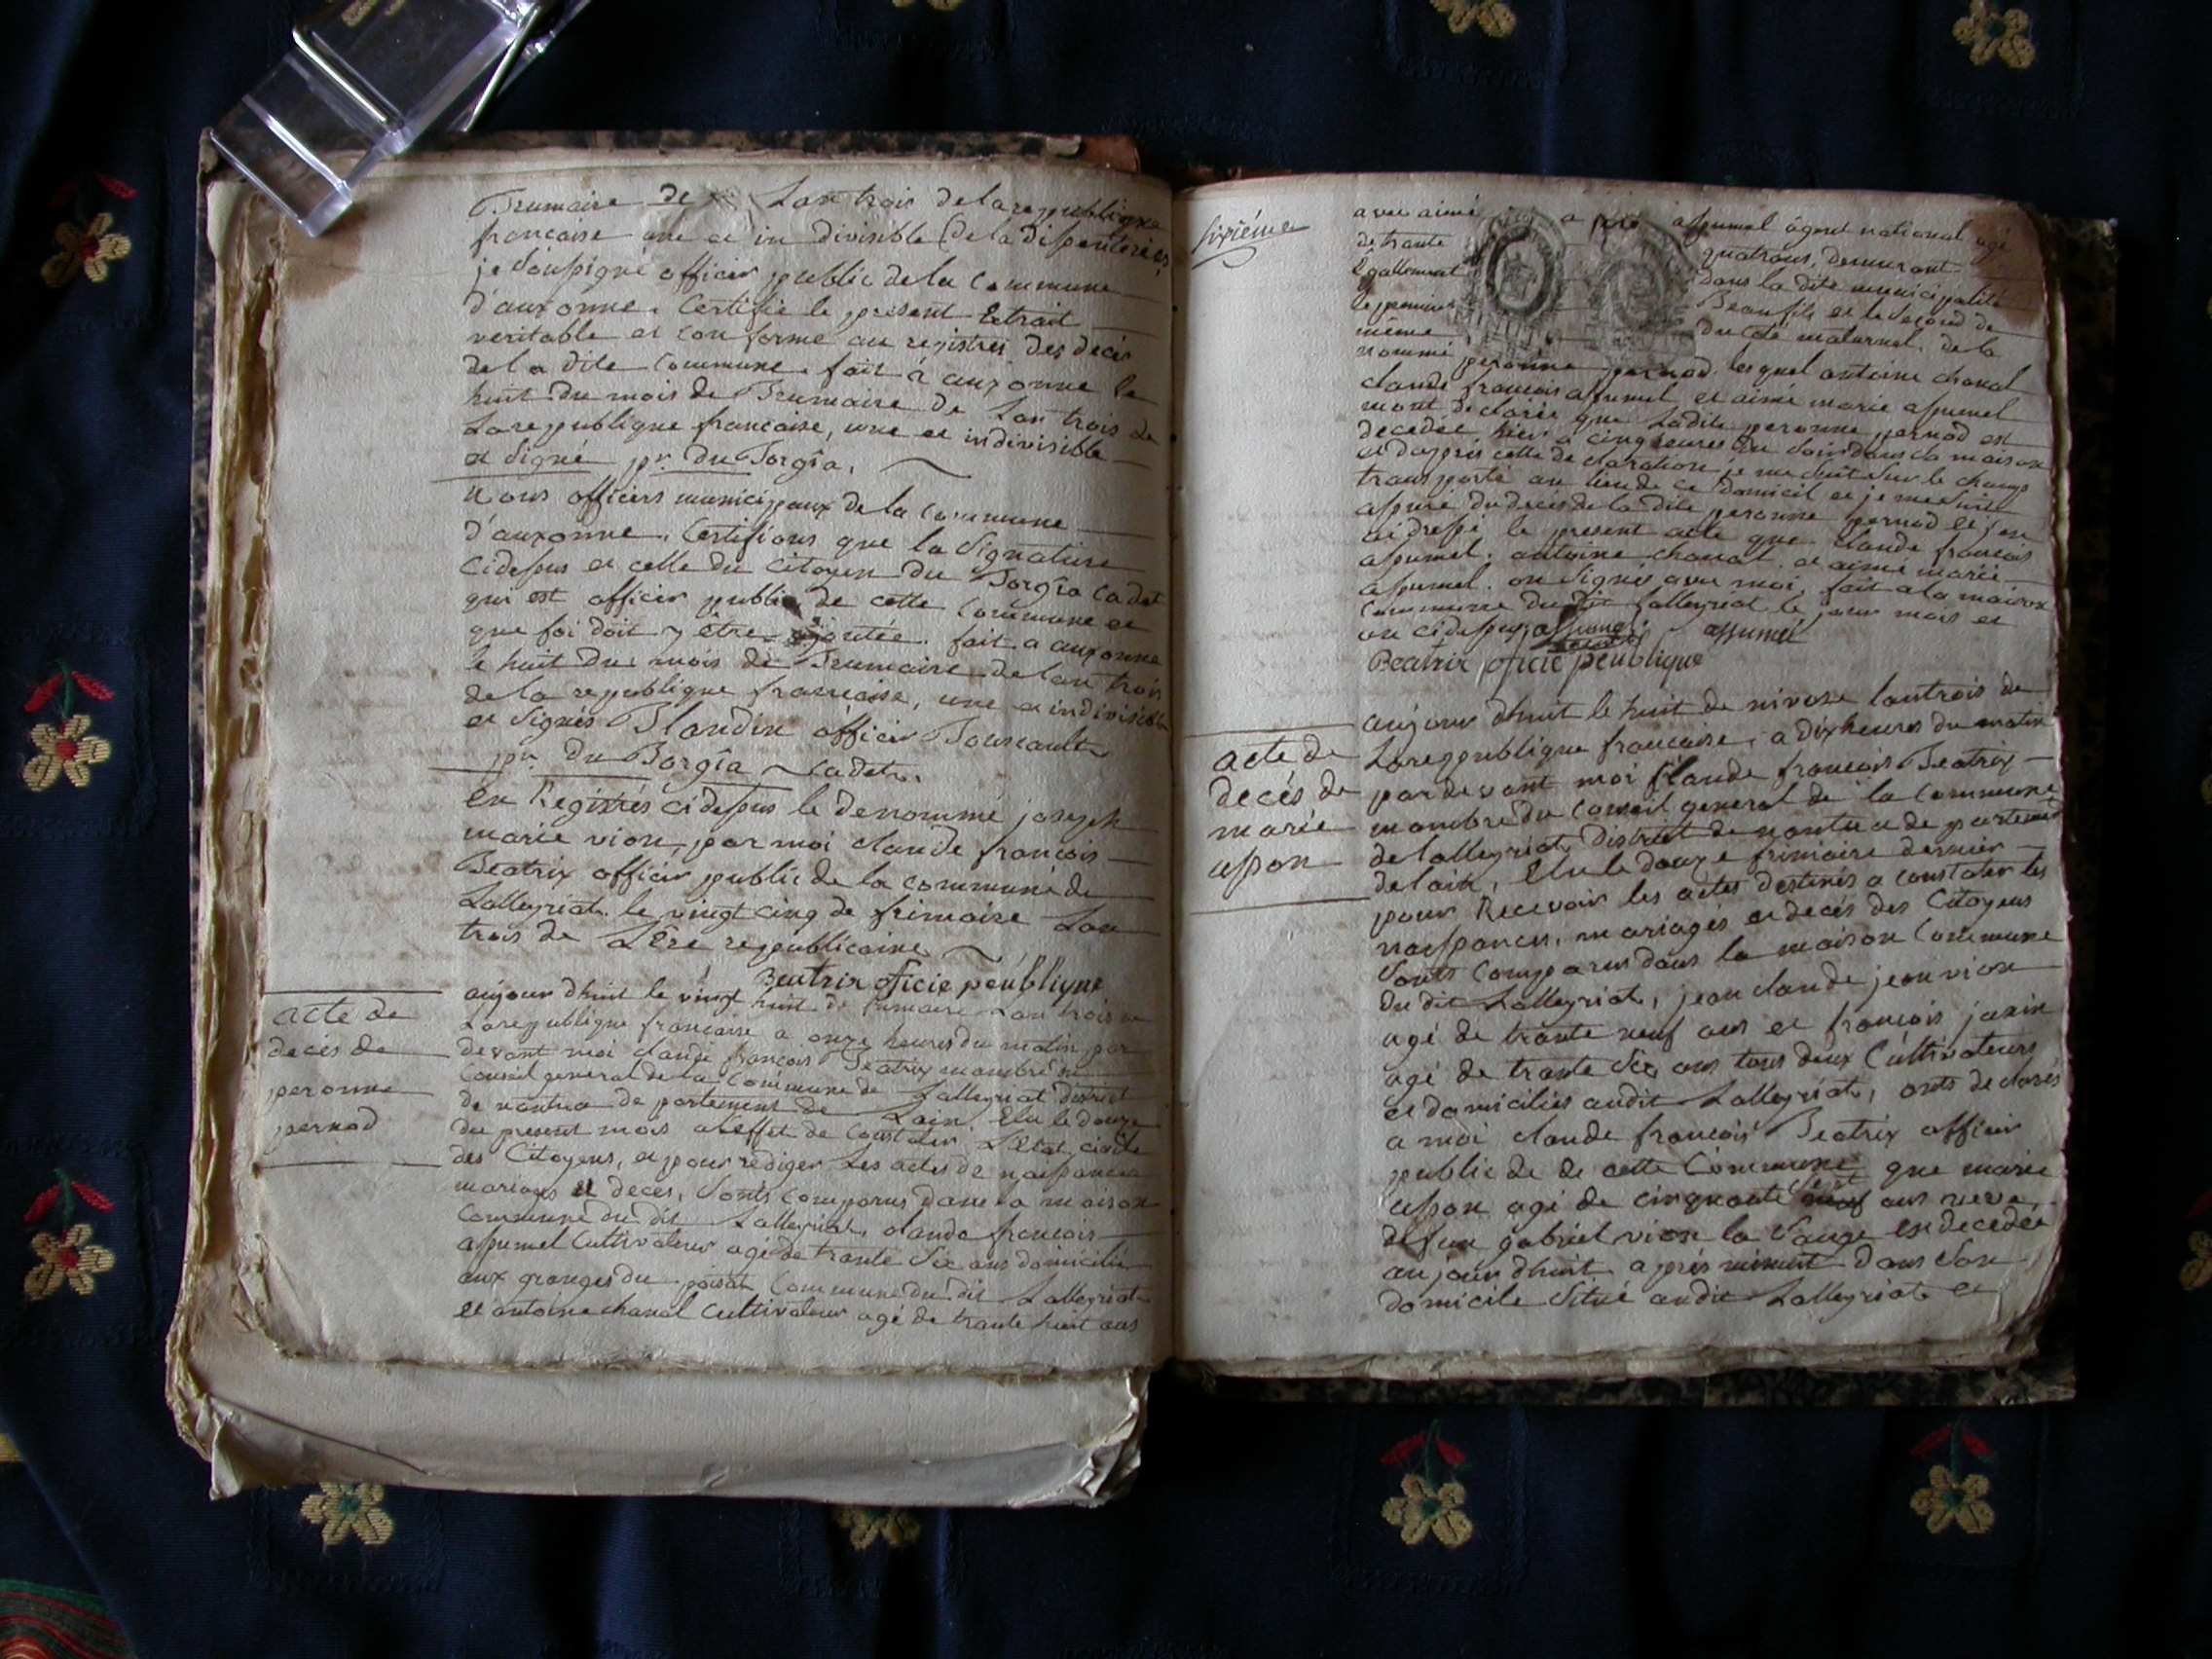 Brumaire de Lan trois de la republique
francaise une et in divisible de la disenterie
je soussigné officier public de la Commune
d'auxonne. Certifie le present Extrait
veritable et conforme au registres des decés
de la dite Commune. fait à auxonne le
huit du mois de Brumaire de Lan trois de
La republique francaise, une et indivisible
et Signé pr. du Borgîa,
Nous officiers municipaux de la Commune
d'auxonne. Certifions que la Signature
Cidessus et celle du Citoyen du Borgîa Cadet
qui est officier public de cette Commune et
que foi doit y être ajoutée. fait a auxonne
le huit du mois de Brumaire de lan trois
de la republique francaise, une et indivisible
et Signés Blandin officier Boussault
pr. Du Borgîa Cadet.
en Registrés cidessus le denommé joseph
marie vion par moi claude francois
Beatrix officier public de la communé de
Lalleyriat. le vingt cinq de frimaire Lan
trois de L'Ere republicaine
Beatrix oficie peublique
acte de
decés de
peronne
pernod
aujour dhuit le vingt huit de frimaire Lan trois de
La republique francaise a onze heures du matin par
devant moi claude francois Beatrix manbre du
Conseil general de la Commune de Lalleyriat district
de nantua de partement de Lain, Elu le douze
du present mois a leffet de Constater L'Etat civile
des Citoyens, et pour rediger Les actes de naissances
mariages et deces, Sonts comparus dans la maison
Commune du dit Lalleyriat, claude francois
assumel Cultivateur agé de trante Six ans domicilié
aux granges du poisat Commune du dit Lalleyriat
et antoine chanal Cultivateur agé de trante huit ans
Sixiéme
avec aimé assumel âgent national agé
de trante quatrans, demeurant
Egallement dans la dite municipalité
le premier Beaufils et le second de
même Du coté maternel. de la
nommé peronne pernod. les quel antoine chanal
claude francois assumel et aimé marie assumel
mont declarés que Ladite peronne pernod est
decedée hier a cinq heures du Soir dans sa maison
et daprés cette declaration je me Suit Sur le champ
transporté au lieu de ce domicil et je me Suis
assuré du decés de la dite peronne pernod et jen
ai dressé le present acte que claude francois
assumel. antoine chanal. et aimé marie
assumel. on Signés avec moi, fait a la maison
Commune du dit Lalleyriat le jour mois et
an cidessus assumel assumel
Beatrix oficie peublique
acte de
decés de
marie
usson
aujour dhuit le huit de nivose lantrois de
La republique francaise, a dix heures du matin
pardevant moi Claude francois Beatrix
manbre du Conseil general de la Commune
de lalleyriat, District de nantua de partement
de lain, Elu le douze frimaire dernier
pour Recevoir les actes destinés a constater les
naissances, mariages et decés des Citoyens
Sonts Comparus dans la maison Commune
du dit Lalleyriat, jean claude jean vion
agé de trante neuf ans et francois
agé de trante Six ans tous deux Cultivateurs
et domiciliés audit Lalleyriat, onts declarés
a moi claude francois Beatrix officier
public de de cette Commune que marie
usson agé de cinquante ans veve
defun gabriel vion la Sauge est decedée
aujour dhuit aprés minuit dans Son
domicile Situé audit Lalleyriat et